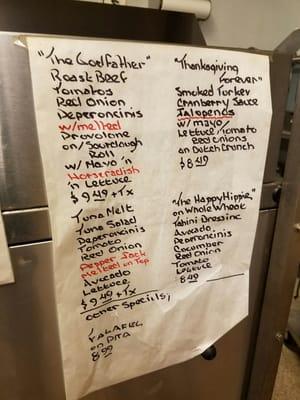 "The Godfather"
Roast Beef
Tomatos
Red Onion
Peperoncinis
w/melted
Provolone
on/Sourdough
Roll
w/Mayo 'n
Horseradish
'n Lettuce
$9.49 + Tx
Tuna Melt
Tuna Salad
Peperoncinis
Tomato
Red Onion
Pepper Jack
Melted on Top
Avocado
Lettuce
$9.49 + Tx
other Specials,
FALAFEL
on PITA
8.99
"Thanksgiving
Forever"
Smoked Turkey
Cranberry Sauce
Jalopenos
w/mayo/
Lettuce, Tomato
Red Onions
on Dutch Crunch
$8.49
"The Happy Hippie"
on Whole Wheat
Tahini Dressing
Avocado
Peperoncinis
Cucumber
Red Onion
Tomato
Lettuce
8.49